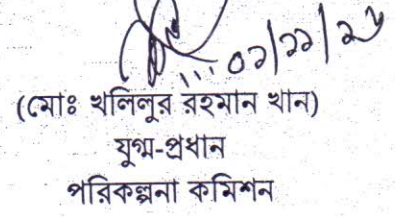 (মোঃ খলিলুর রহমান খান)
যুগ্ম-প্রধান
পরিকল্পনা কমিশন